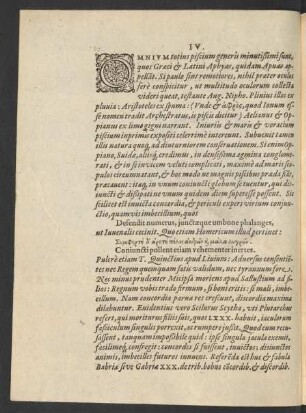 IV.
OMNIVM totius piscium generis minutissimi sunt,
quos Græci & Latini Aphyas, quidam Apuas ap-
pellāt. Si paulò sint remotiores, nihil præter oculos
ferè conspicitur, ut multitudo oculorum collecta
videri queat, testante Aug. Nipho. Plinius illas ex
pluvia: Aristoteles ex spuma: (Vnde & ἀφρὸς, quod Ionum es-
se nomen tradit Archestratus, is piscis dicitur) Aelianus & Op-
pianus ex limo gigni narrant. Iniuriæ & mortis & voracium
piscium inprimis expositi celerrimè intereunt. Subvenit tamen
illis natura quoq; ad diuturniorem conservationem. Si enim Op-
piano, Suidæ, alijsq; credimus, in densissima agmina conglome-
rantur, & in se invicem veluti complicati, maximo ad maris sco-
pulos circumnatant, & hoc modo ne magnis piscibus præda fiāt,
præcavent: itaq; in vnum coniuncti globum servantur, qui dis-
iuncti & dissipati ne vnum quidem diem superesse possent. Sic
scilicet est invicta concordia, & periculi expers eorum coniun-
ctio, quamvis imbecillium, quos
Defendit numerus, junctæque umbone phalanges,
ut Iuvenalis cecinit. Quo etiam Homericum illud pertinet:
Coniuncti pollent etiam vehementer inertes.
Pulcrè etiam T. Quinctius apud Livium: Adversus consentiē-
tes nec Regem quemquam satis validum, nec tyrannum fore.
Nec minus prudenter Micipsa moriens apud Sallustium ad fi-
lios: Regnum vobis trado firmum, si boni eritis: si mali, imbe-
cillum. Nam concordia parvæ res crescunt, discordia maximæ
dilabuntur. Evidentius vero Scilurus Scytha, vti Plutarchus
refert, qui moriturus filiis suis, quos LXXX. habuit, iaculorum
fasciculum singulis porrexit, ac rumpere jussit. Quod cum recu-
sassent, tanquam impossibile quid: ipse singula iacula exemit,
facileq; confregit: concordes si fuissent, invictos: disjunctis
animis, imbecilles futuros innuens. Referēda est huc & fabula
Babriæ sive Gabriæ XXX. de trib. bobus cōcordib. & discordib.